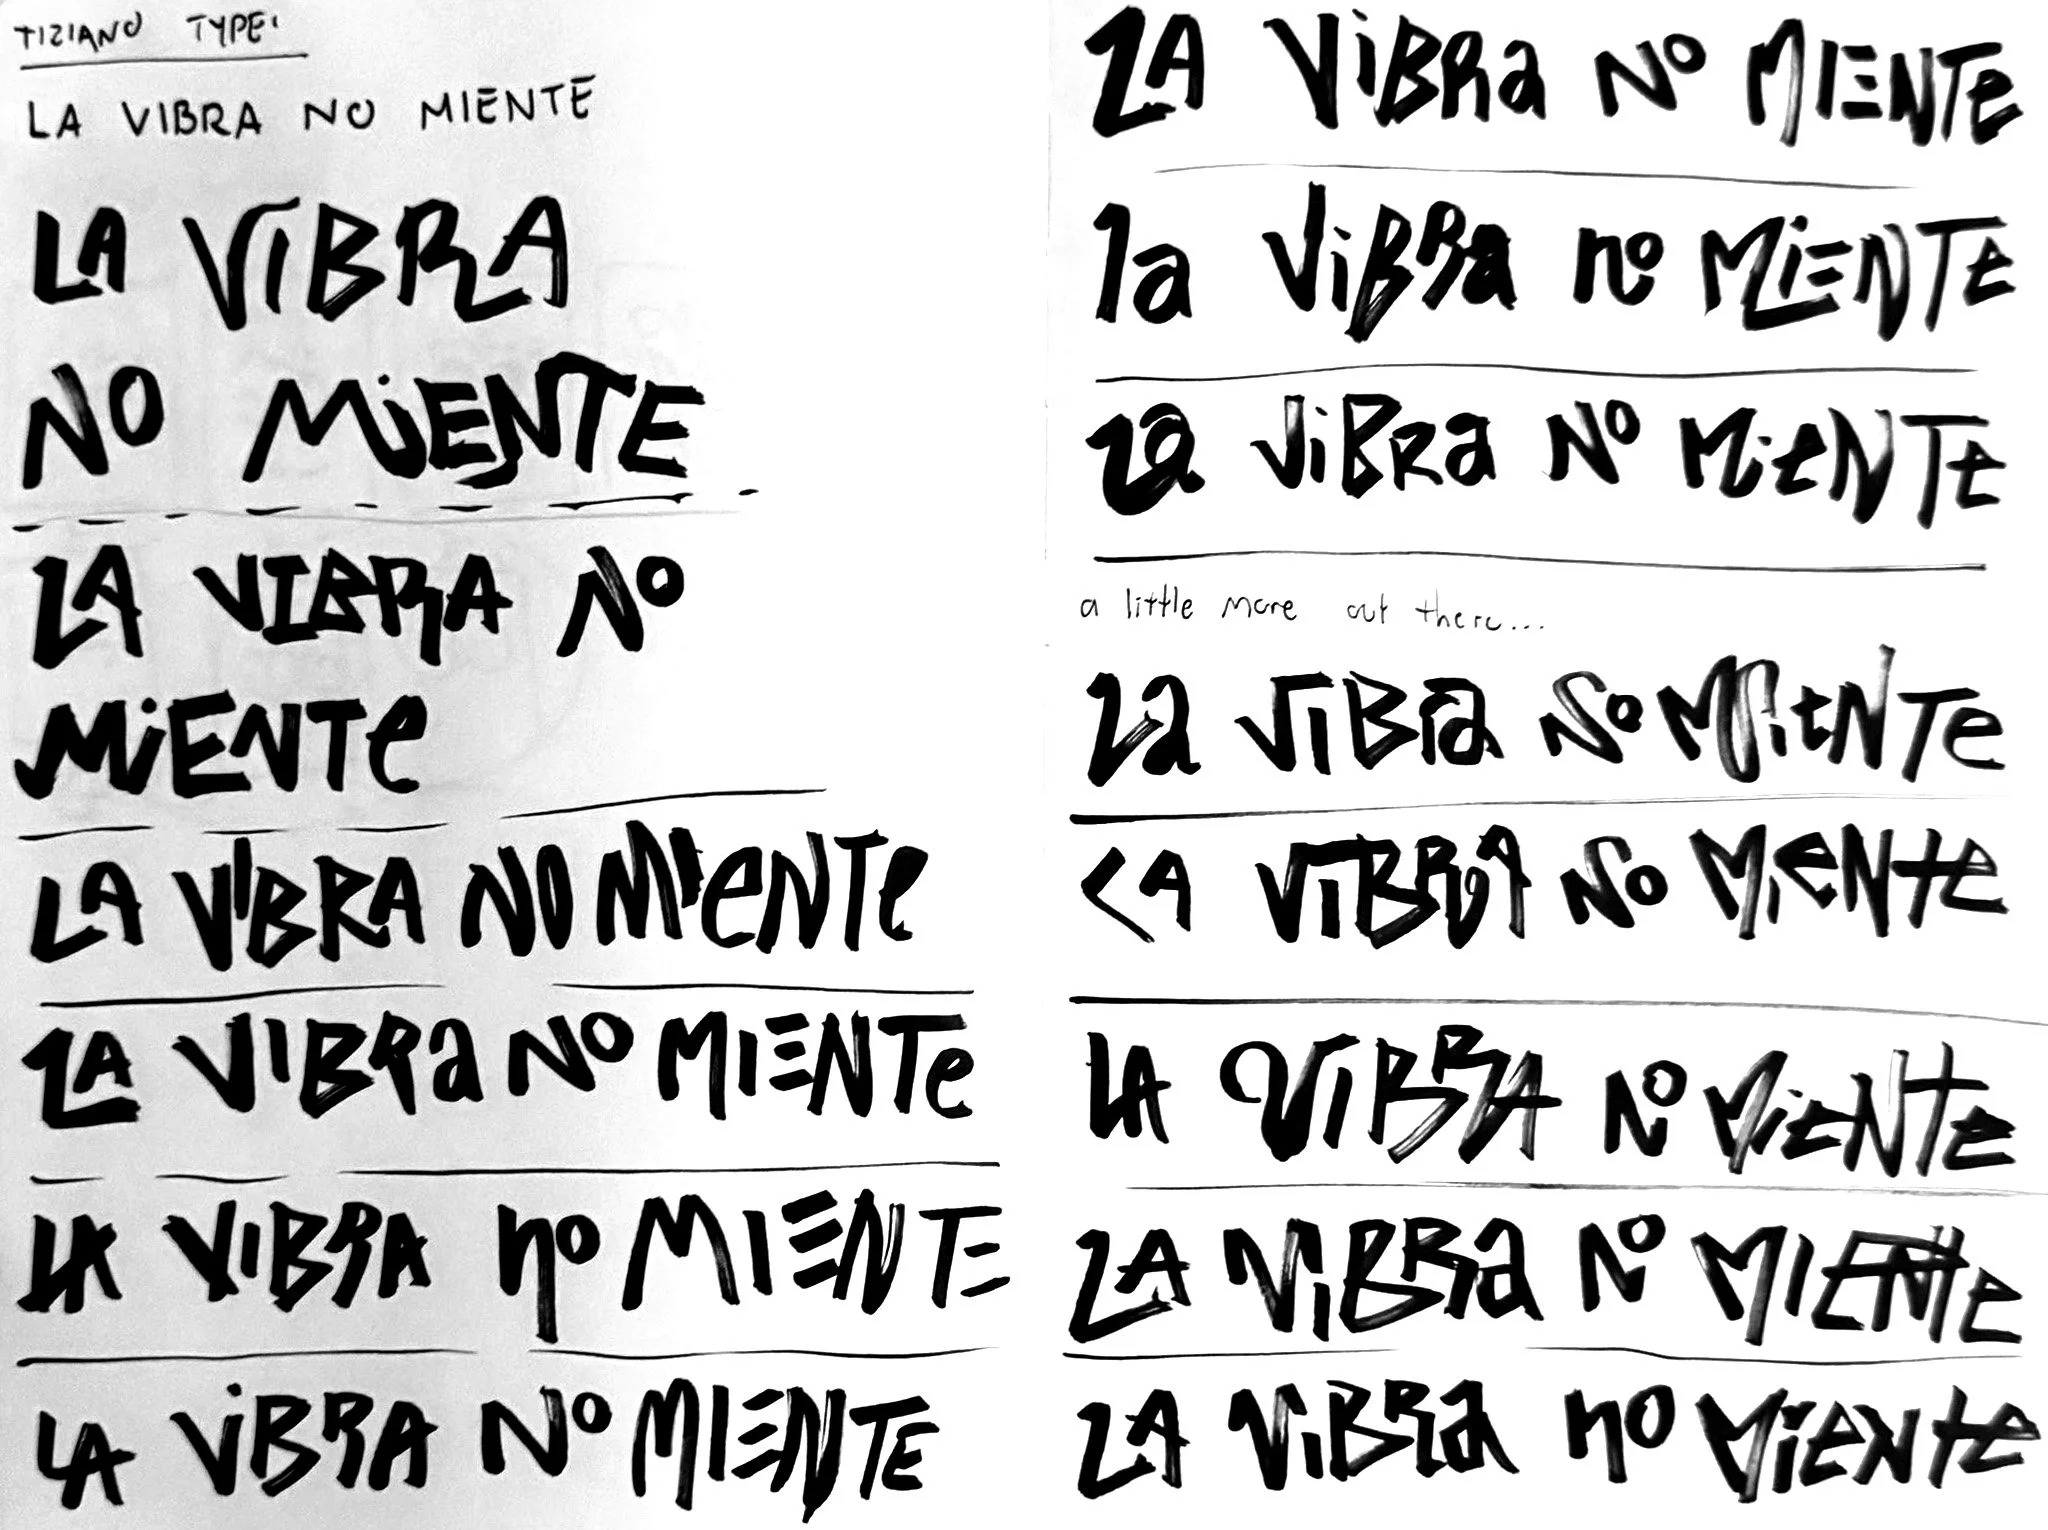 TIZIANO TYPE:
LA VIBRA NO MIENTE
LA VIBRA
NO MiENTE
LA VIBRA NO
MiENTe
LA ViBRA NO MIeNTe
LA VIBRa NO MIENTe
LA VIBRA no MIENTE
LA ViBRA NO MIENTE
LA ViBRa NO MIENTe
la ViBRa no MiENTe
La ViBRa NO MiENTe
a little more out there...
La ViBRa NO MiENTe
LA ViBRA NO MieNte
LA ViBRA NO MiENtE
LA ViBRa NO MIENtE
LA ViBRa no Miente